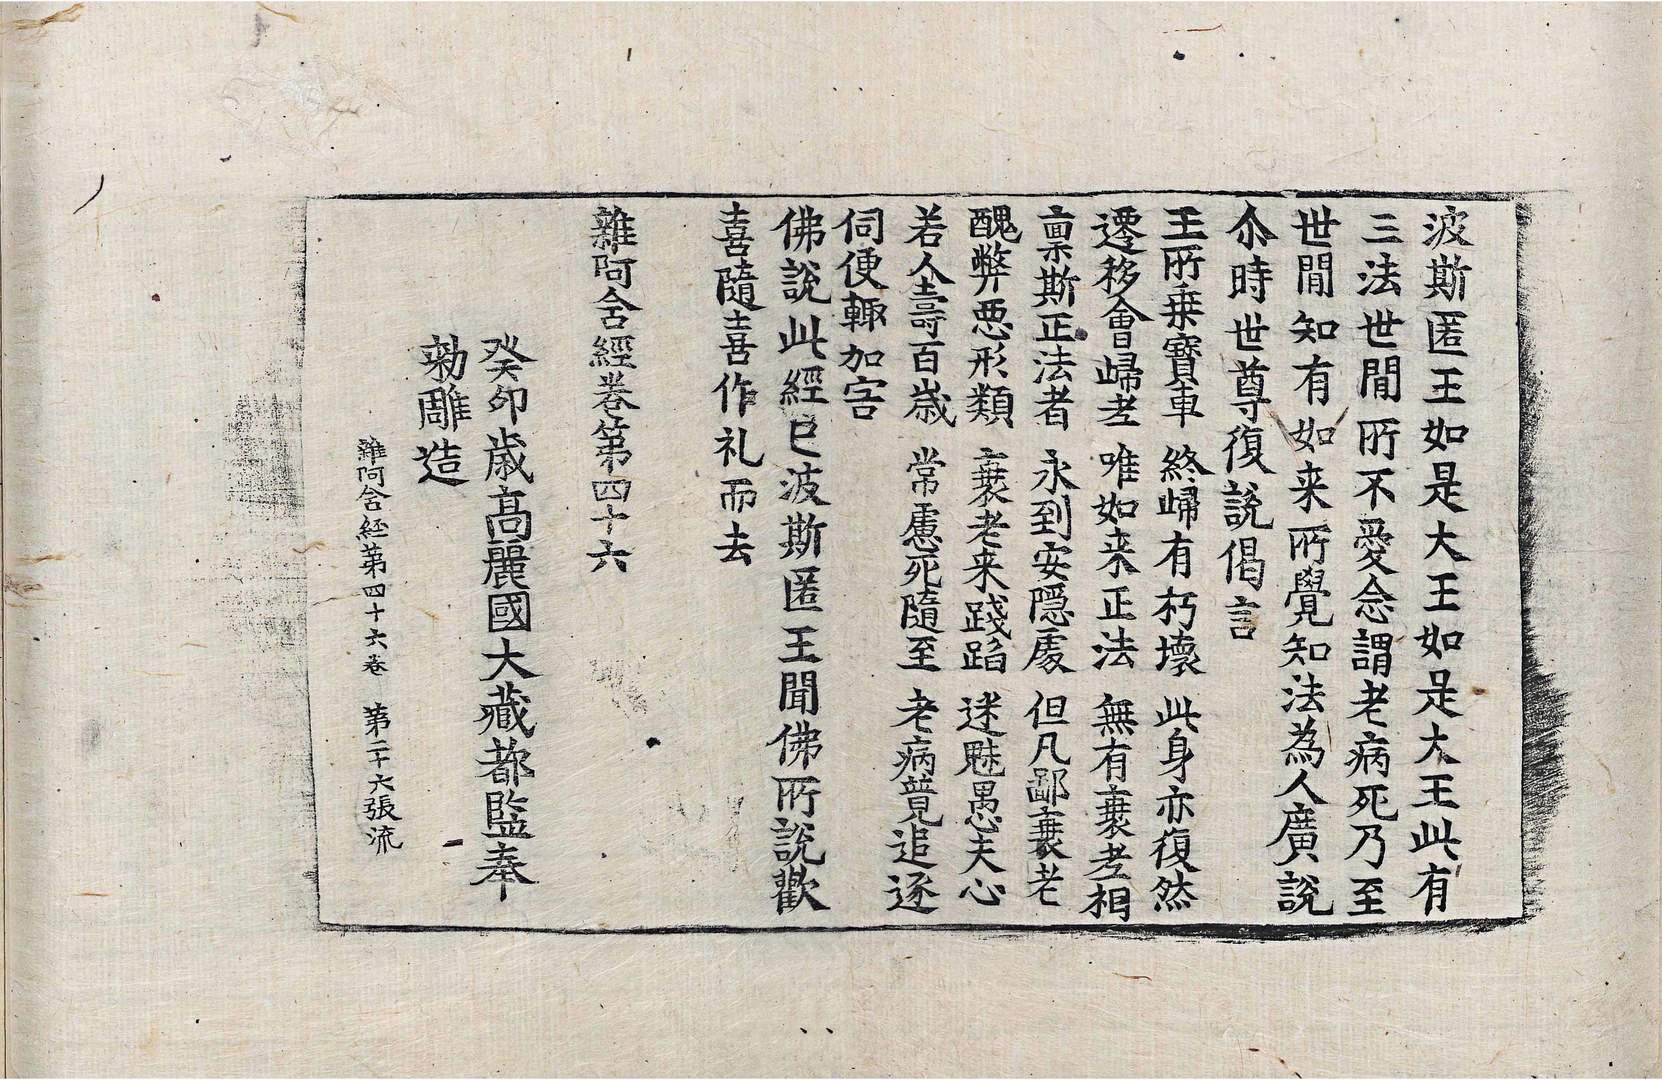 波斯匿王如是大王如是大王此有
三法世閒所不愛念謂老病死乃至
世閒知有如来所覺知法為人廣說
尒時世尊復說偈言
王所乗寶車 終歸有朽壞 此身亦復然
遷移會歸老 唯如来正法 無有衰老相
稟斯正法者 永到安隱處 但凡鄙衰老
醜弊恶形類 衰老来踐蹈 迷魅愚夫心
若人壽百歲 常慮死隨至 老病競追逐
伺便輙加害
佛說此經已波斯匿王聞佛所說歡
喜隨喜作礼而去
雜阿含經卷第四十六
癸卯歲高麗國大藏都監奉
勑雕造
雜阿含経第四十六卷 第二十六張 流